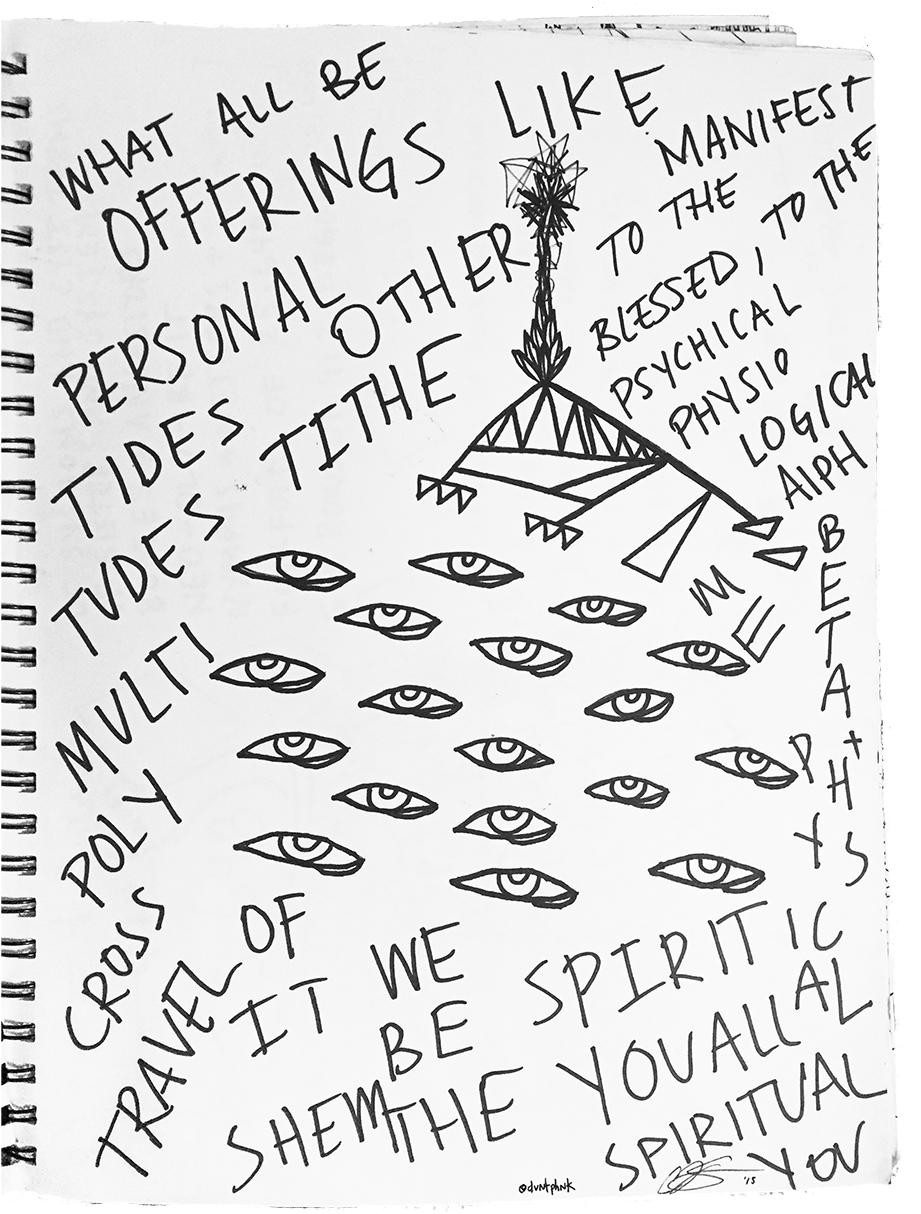 WHAT ALL BE
OFFERINGS
PERSONAL
OTHER
TIDES TITHE
TVDES
MULTI
POLY
CROSS
TRAVEL OF
IT WE
BE
SHEM THE
LIKE
MANIFEST
TO THE
BLESSED, TO THE
PSYCHICAL
PHYSIO
LOGICAL
AlPH
BETA+
ME
PHYS
SPIRITIC
YOU ALL AL
SPIRITUAL
YOU
@dvntphnk
'15